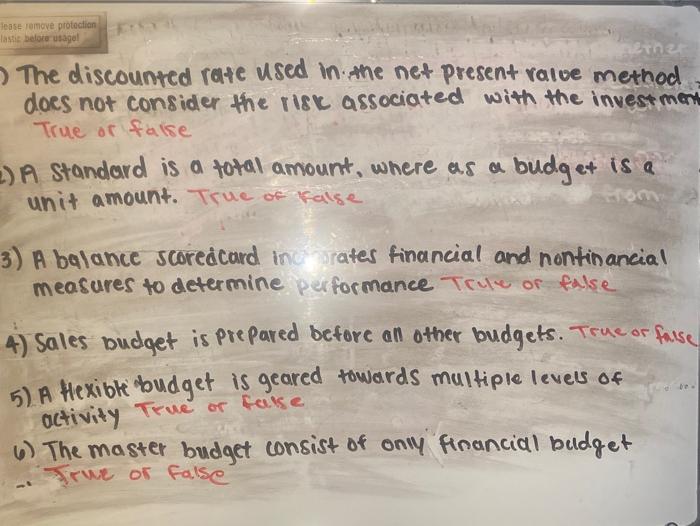 lease remove protection
lastic before usage!
) The discounted rate used in the net present value method
does not consider the risk associated with the investment
True or false
2) A Standard is a total amount, where as a budget is a
unit amount. True or False
from
3) A balance scoredcard incorporates financial and nonfinancial
measures to determine performance True or false
4) Sales budget is prepared before all other budgets. True or false
5) A flexible budget is geared towards multiple levels of
activity True or false
6) The master budget consist of only financial budget
True or False